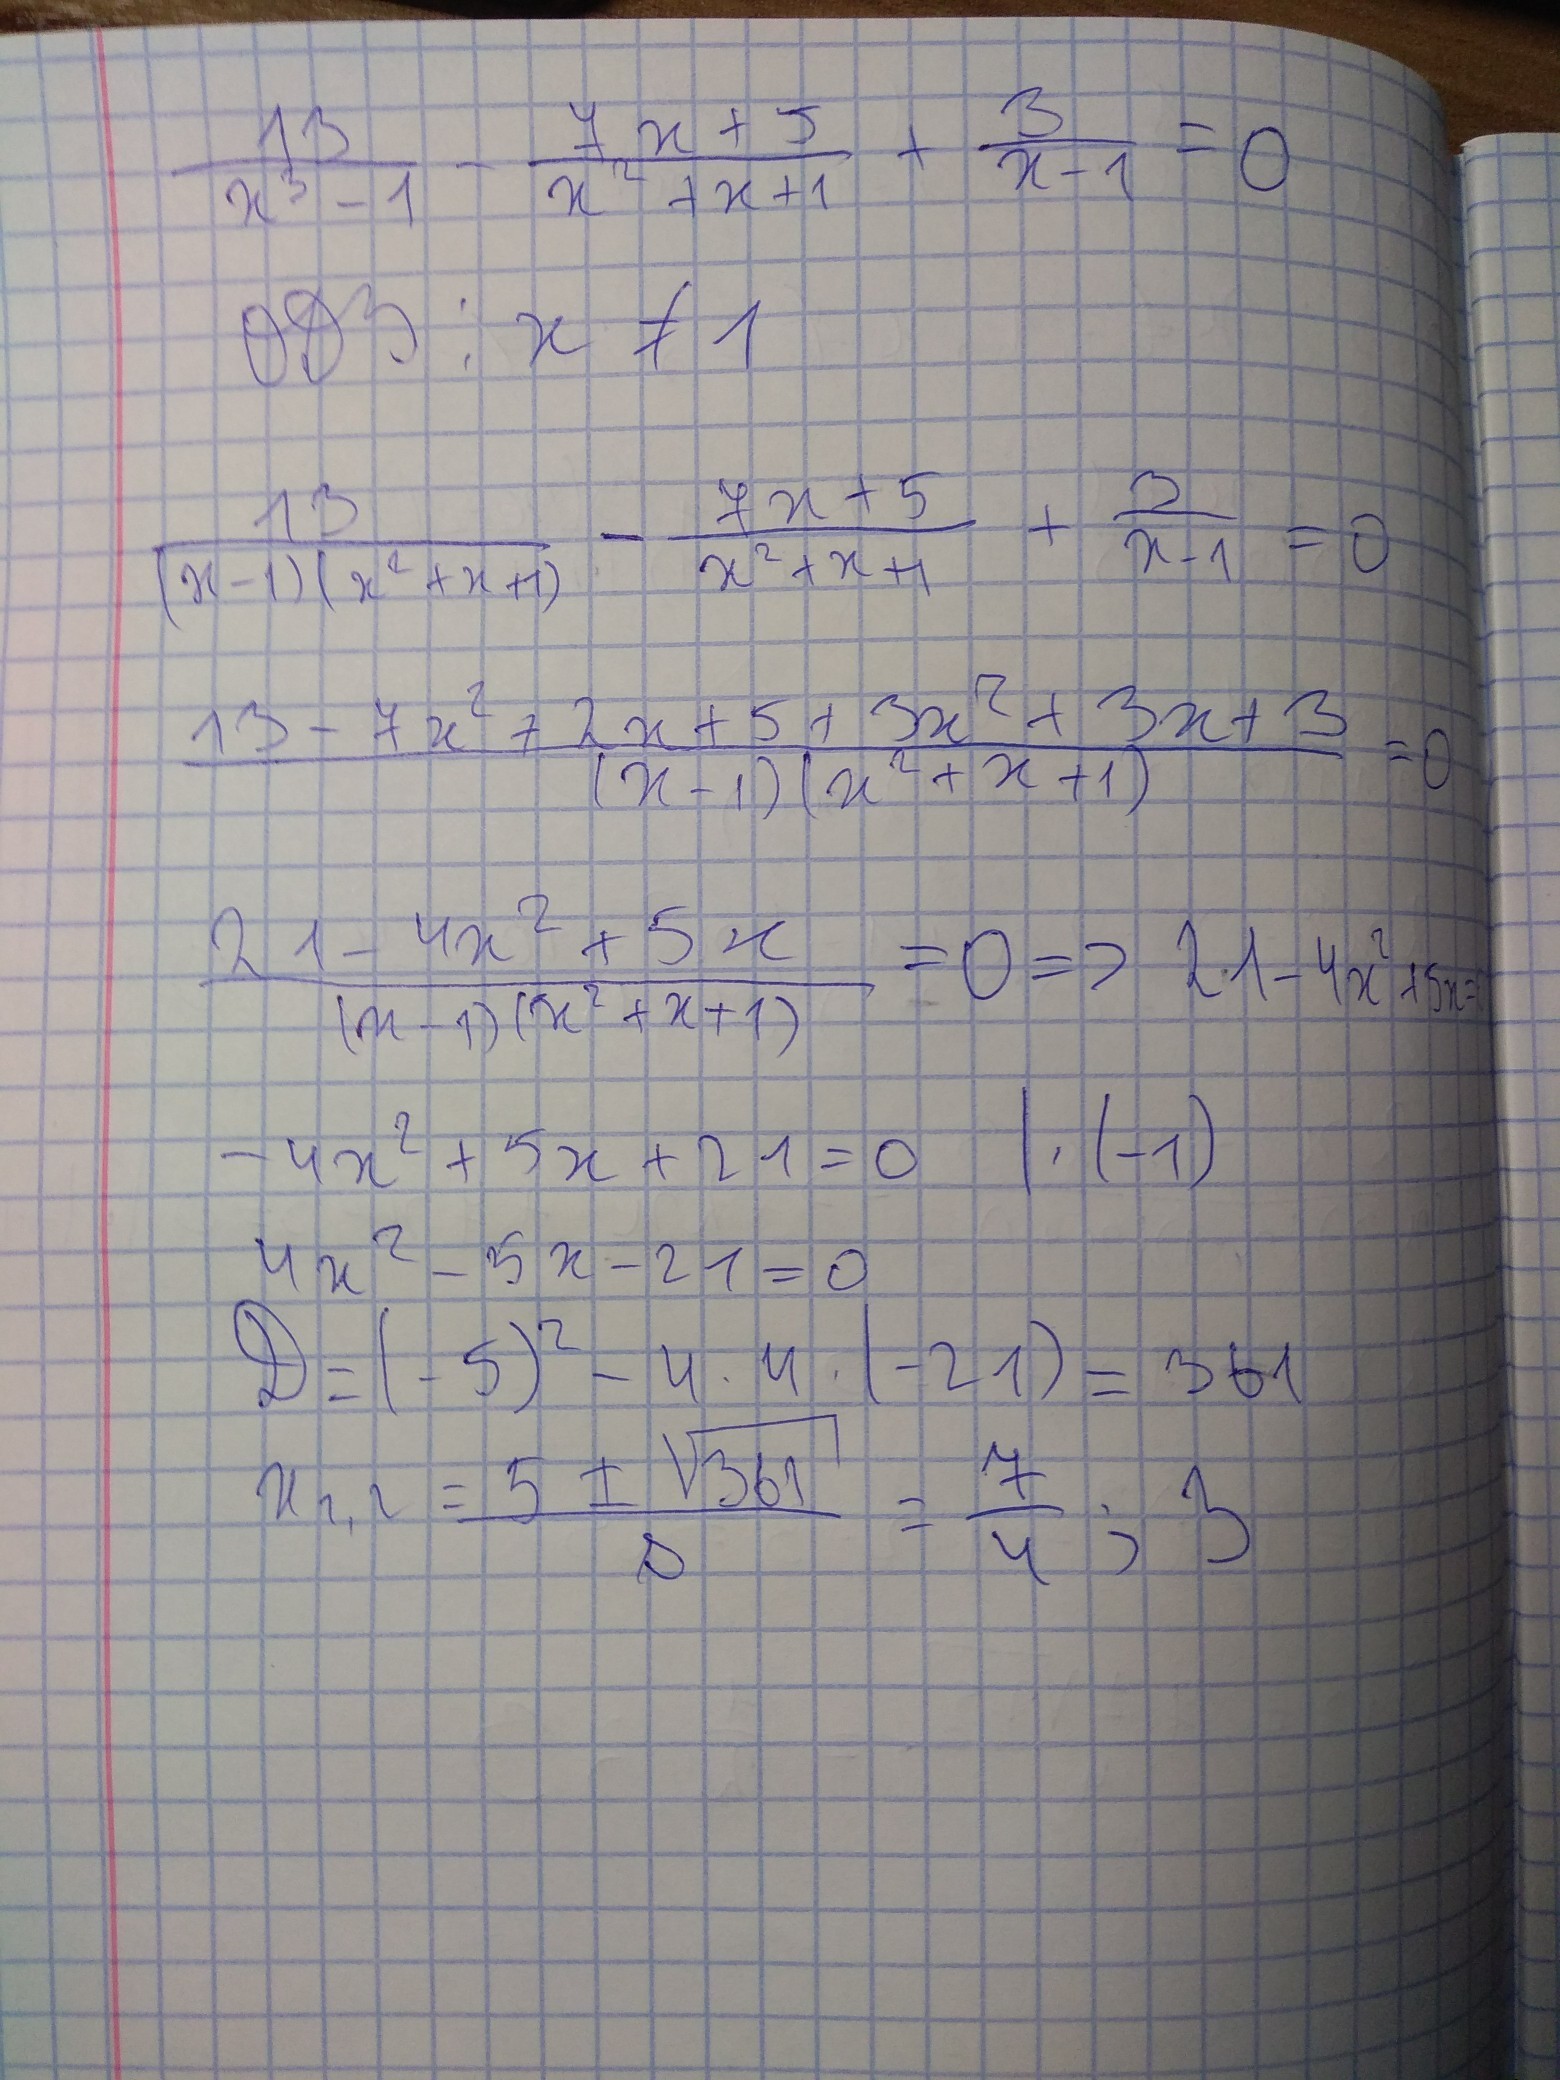 13/(x³-1) - (7x+5)/(x²+x+1) + 3/(x-1) = 0
ОДЗ: x ≠ 1
13/((x-1)(x²+x+1)) - (7x+5)/(x²+x+1) + 3/(x-1) = 0
(13-7x²+2x+5+3x²+3x+3)/((x-1)(x²+x+1)) = 0
(21-4x²+5x)/((x-1)(x²+x+1)) = 0 => 21-4x²+5x=
-4x²+5x+21=0 |·(-1)
4x²-5x-21=0
D=(-5)²-4·4·(-21)=361
x₁,₂ = (5±√361)/8 = 7/4; 3